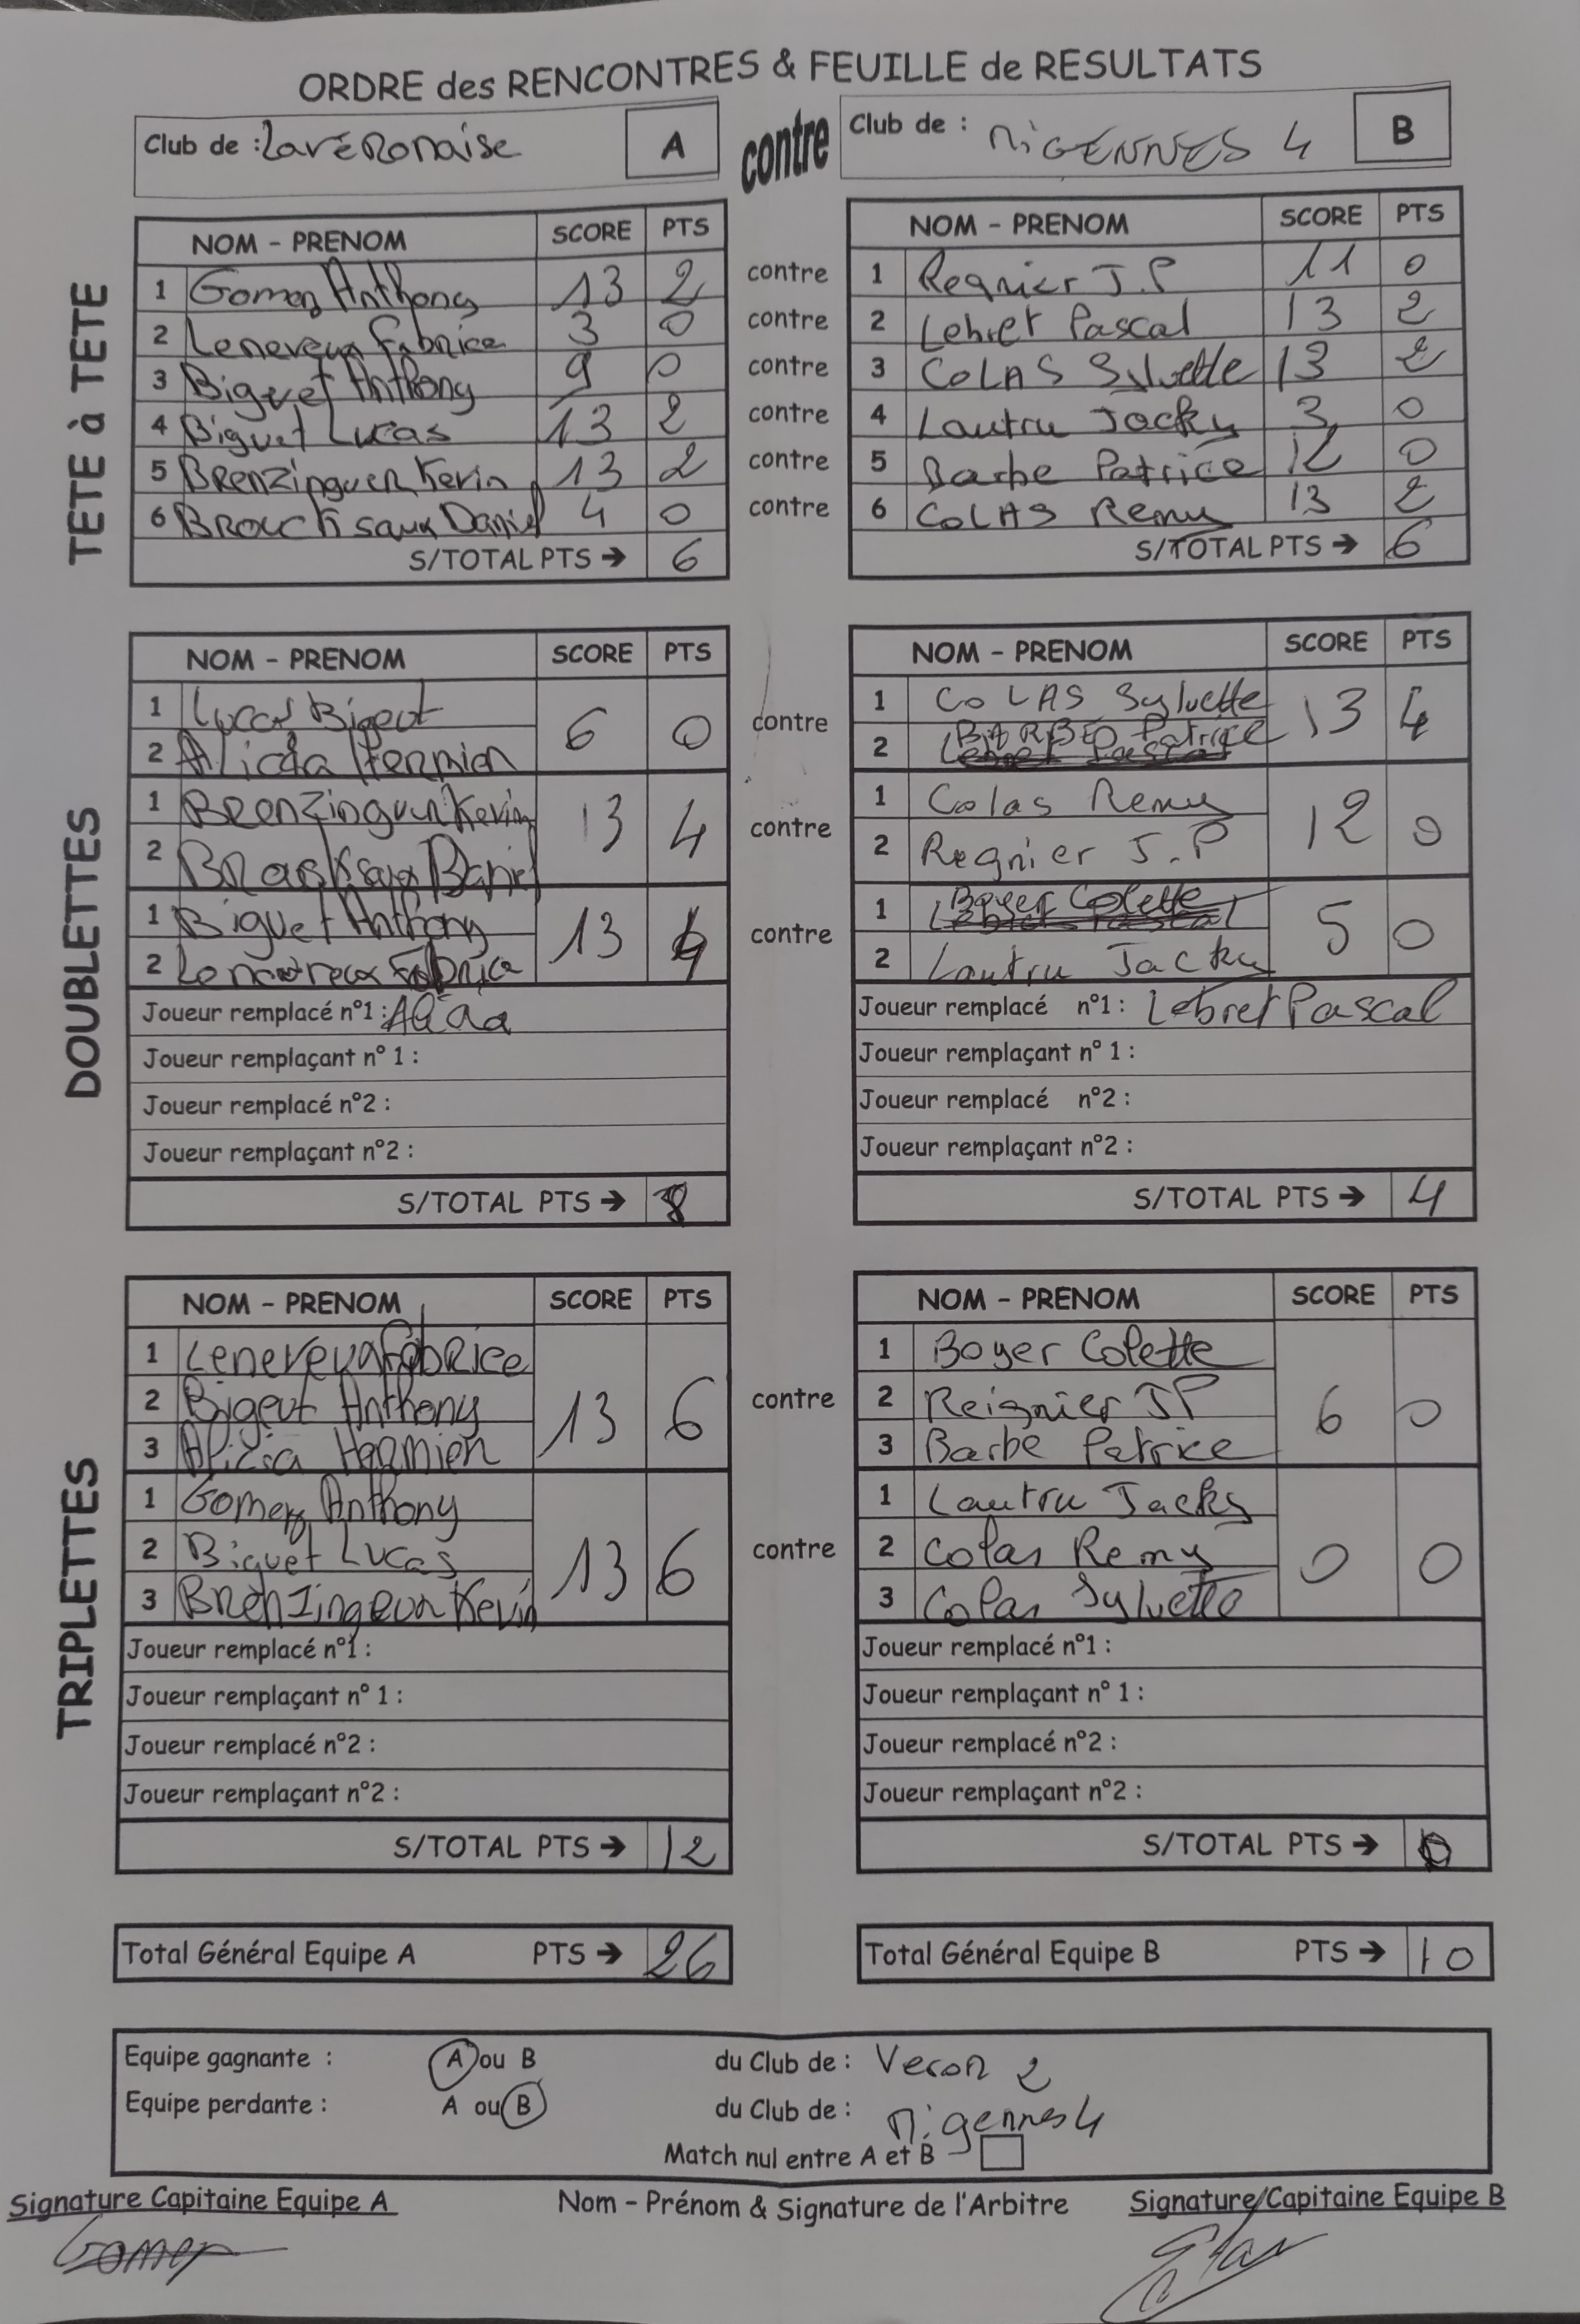 ORDRE des RENCONTRES & FEUILLE de RESULTATS
Club de : LavéRonaise A contre Club de : MiGENNES 4 B
TETE à TETE
NOM - PRENOM SCORE PTS NOM - PRENOM SCORE PTS
1 Gomez Anthony 13 2 contre 1 Regnier J.P 11 0
2 Leneveux Fabrice 3 0 contre 2 Lebret Pascal 13 2
3 Biguet Anthony 9 0 contre 3 COLAS Sylvette 13 2
4 Biguet Lucas 13 2 contre 4 Lautru Jacky 3 0
5 BRenzinguer Kevin 13 2 contre 5 Barbe Patrice 12 0
6 BROUCHsaux Daniel 4 0 contre 6 COLAS Remy 13 2
S/TOTAL PTS → 6 S/TOTAL PTS → 6
DOUBLETTES
NOM - PRENOM SCORE PTS NOM - PRENOM SCORE PTS
1 Lucas Bigeut 6 0 contre 1 COLAS Sylvette 13 4
2 Alicia 2 BARBE Patrice
1 BRenZinguer Kevin 13 4 contre 1 Colas Remy 12 0
2 Daniel 2 Regnier J.P
1 Biguet Anthony 13 4 contre 1 Boyer Colette 5 0
2 Fabrice 2 Lautru Jacky
Joueur remplacé n°1 : Joueur remplacé n°1 : Lebret Pascal
Joueur remplaçant n° 1 : Joueur remplaçant n° 1 :
Joueur remplacé n°2 : Joueur remplacé n°2 :
Joueur remplaçant n°2 : Joueur remplaçant n°2 :
S/TOTAL PTS → 8 S/TOTAL PTS → 4
TRIPLETTES
NOM - PRENOM SCORE PTS NOM - PRENOM SCORE PTS
1 Leneveux Fabrice 13 6 contre 1 Boyer Colette 6 0
2 Bigeut Anthony 2 Reignier JP
3 Alicia Hermien 3 Barbe Patrice
1 Gomez Anthony 13 6 contre 1 Lautru Jacky 0 0
2 Biguet Lucas 2 Colas Remy
3 BRenzingeur Kevin 3 Colas Sylvette
Joueur remplacé n°1 : Joueur remplacé n°1 :
Joueur remplaçant n° 1 : Joueur remplaçant n° 1 :
Joueur remplacé n°2 : Joueur remplacé n°2 :
Joueur remplaçant n°2 : Joueur remplaçant n°2 :
S/TOTAL PTS → 12 S/TOTAL PTS → 0
Total Général Equipe A PTS → 26 Total Général Equipe B PTS → 10
Equipe gagnante : A ou B du Club de : Veron 2
Equipe perdante : A ou B du Club de : Migennes 4
Match nul entre A et B
Signature Capitaine Equipe A Nom - Prénom & Signature de l'Arbitre Signature Capitaine Equipe B
Gomez